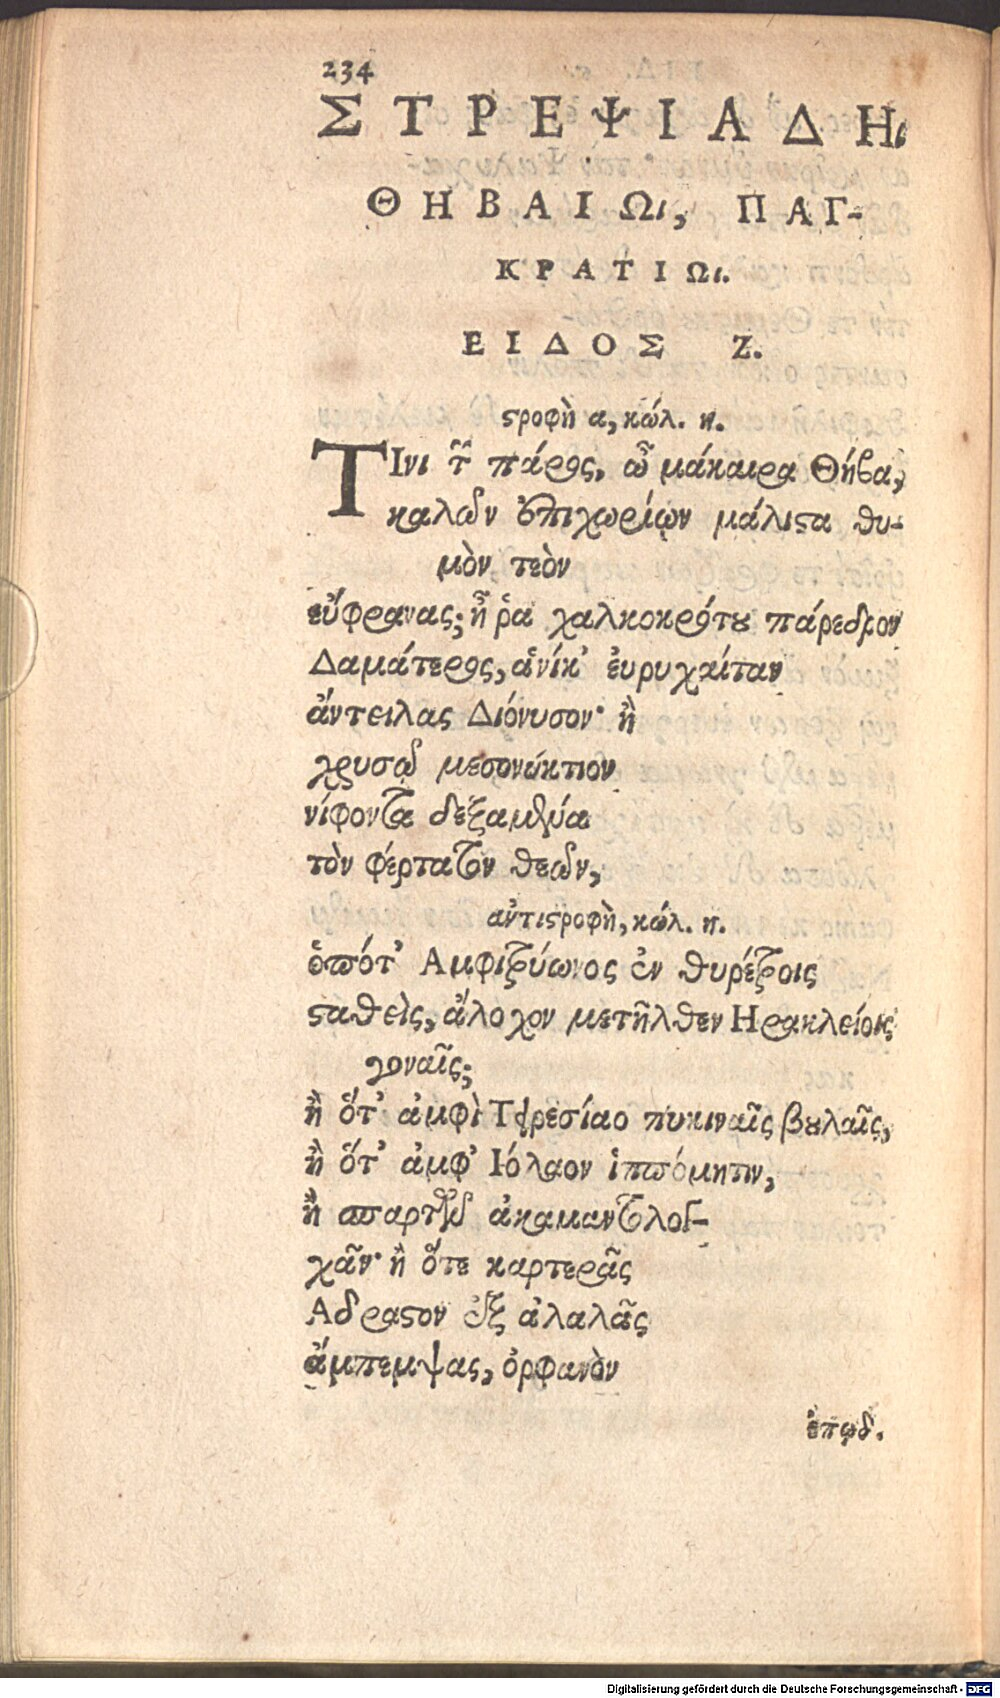 234
ΣΤΡΕΨΙΑΔΗι
ΘΗΒΑΙΩι, ΠΑΓ-
ΚΡΑΤΙΩι.
ΕΙΔΟΣ Ζ.
ϛροφὴ α, κώλ. η.
ΤΙνι τῶν πάρος, ὦ μάκαιρα Θήβα,
καλῶν ἐπιχωρίων μάλιϛα θυ-
μὸν τεὸν
εὔφρανας; ἦ ῥα χαλκοκρότȣ πάρεδρον
Δαμάτερος, ἁνίκ' ἐυρυχαίταν
ἄντειλας Διόνυσον· ἢ
χρυσῷ μεσονύκτιον
νίφοντα δεξαμένα
τὸν φέρτατον θεῶν,
αντιϛροφὴ, κώλ. η.
ὁπότ' Αμφιτρύωνος ἐν θυρέτροις
ϛαθεὶς, ἄλοχον μετῆλθεν Ηρακλείοις
γοναῖς;
ἢ ὅτ' ἀμφὶ Τειρεσίαο πυκιναῖς βȣλαῖς,
ἢ ὅτ' ἀμφ' Ιόλαον ἱππόμητιν,
ἢ σπαρτῶν ἀκαμαντολογ-
χᾶν· ἢ ὅτε καρτερᾶς
Αδραϛον ἐξ ἀλαλᾶς
ἄμπεμψας, ὀρφανὸν
ἐπῳδ.
Digitalisierung gefördert durch die Deutsche Forschungsgemeinschaft - DFG